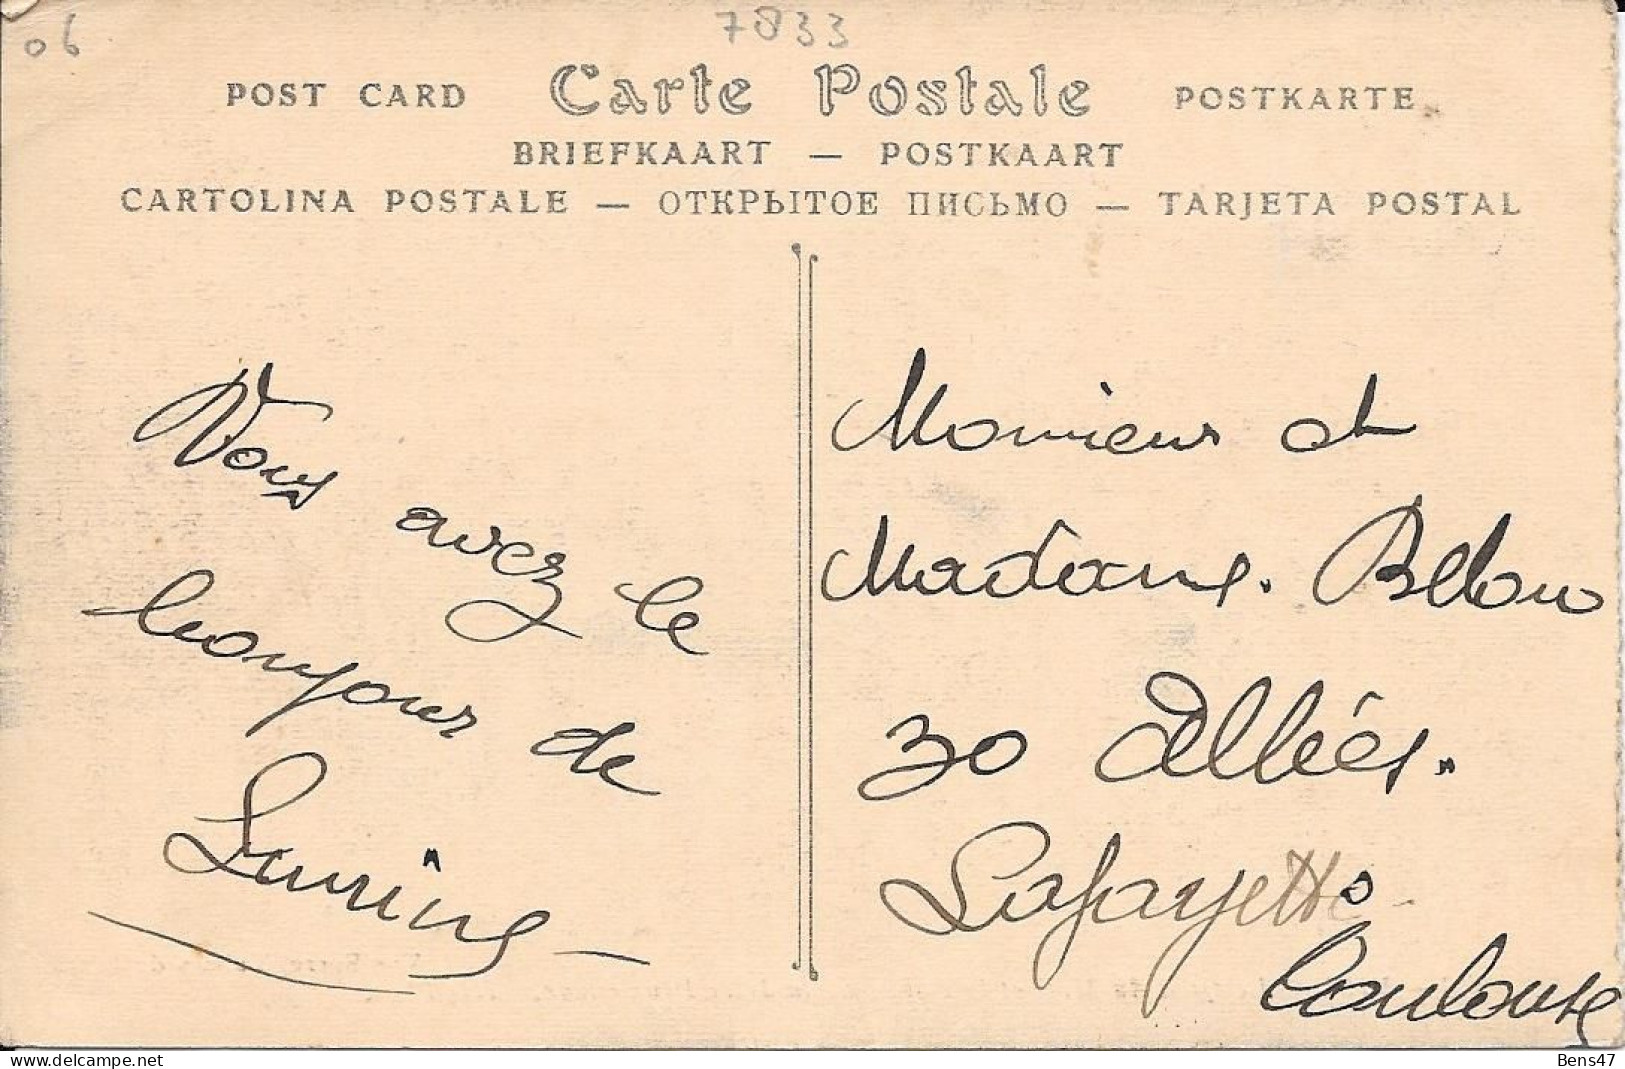 06
7833
POST CARD Carte Postale POSTKARTE
BRIEFKAART — POSTKAART
CARTOLINA POSTALE — ОТКРЫТОЕ ПИСЬМО — TARJETA POSTAL
Vous avez le
bonjour de
Monsieur et
Madame.
30 Allées.
Lafayette
Toulouse
Bens47